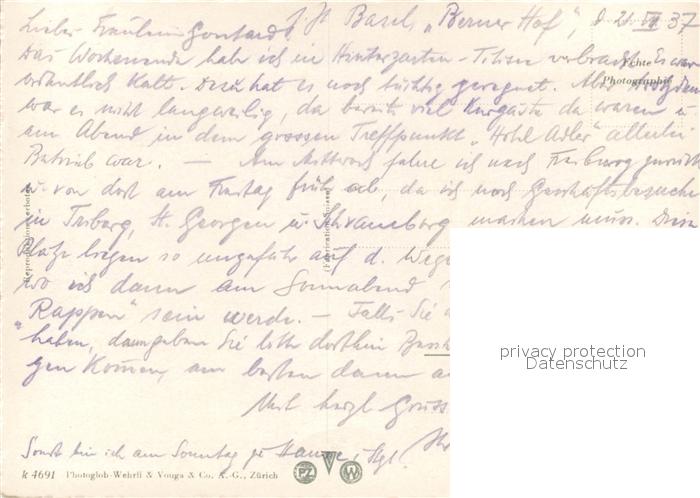 z. Zt. Basel, „Berner Hof“, d. 21. 37
Liebes Fräulein Gontard!
Das Wochenende hab ich in Hinterzarten-Titisee verbracht. Es war
ordentlich kalt. Dazu hat es noch tüchtig geregnet. Aber trotzdem
war es nicht langweilig, da bereits viel Kurgäste da waren u.
am Abend in dem grossen Treffpunkt „Hotel Adler“ allerlei
Betrieb war. — Am Mittwoch fahre ich nach Freiburg zurück
u. von dort am Freitag früh ab, da ich noch Geschäftsbesuche
in Triberg, St. Georgen u. machen muss. Diese
Plätze liegen so ungefähr auf d. Wege
wo ich dann am Sonnabend
Rappen“ sein werde. — Falls Sie
haben, dann geben Sie bitte dorthin
gen können, am besten dann
Mit herzl. Gruss
Sonst bin ich am Sonntag zu Hause, Stgt.
Echte
Photographie
Reproduktion verboten
(Fabrication Suisse)
k 4691 Photoglob-Wehrli & Vouga & Co. A.-G., Zürich
PZ
V
W
privacy protection
Datenschutz